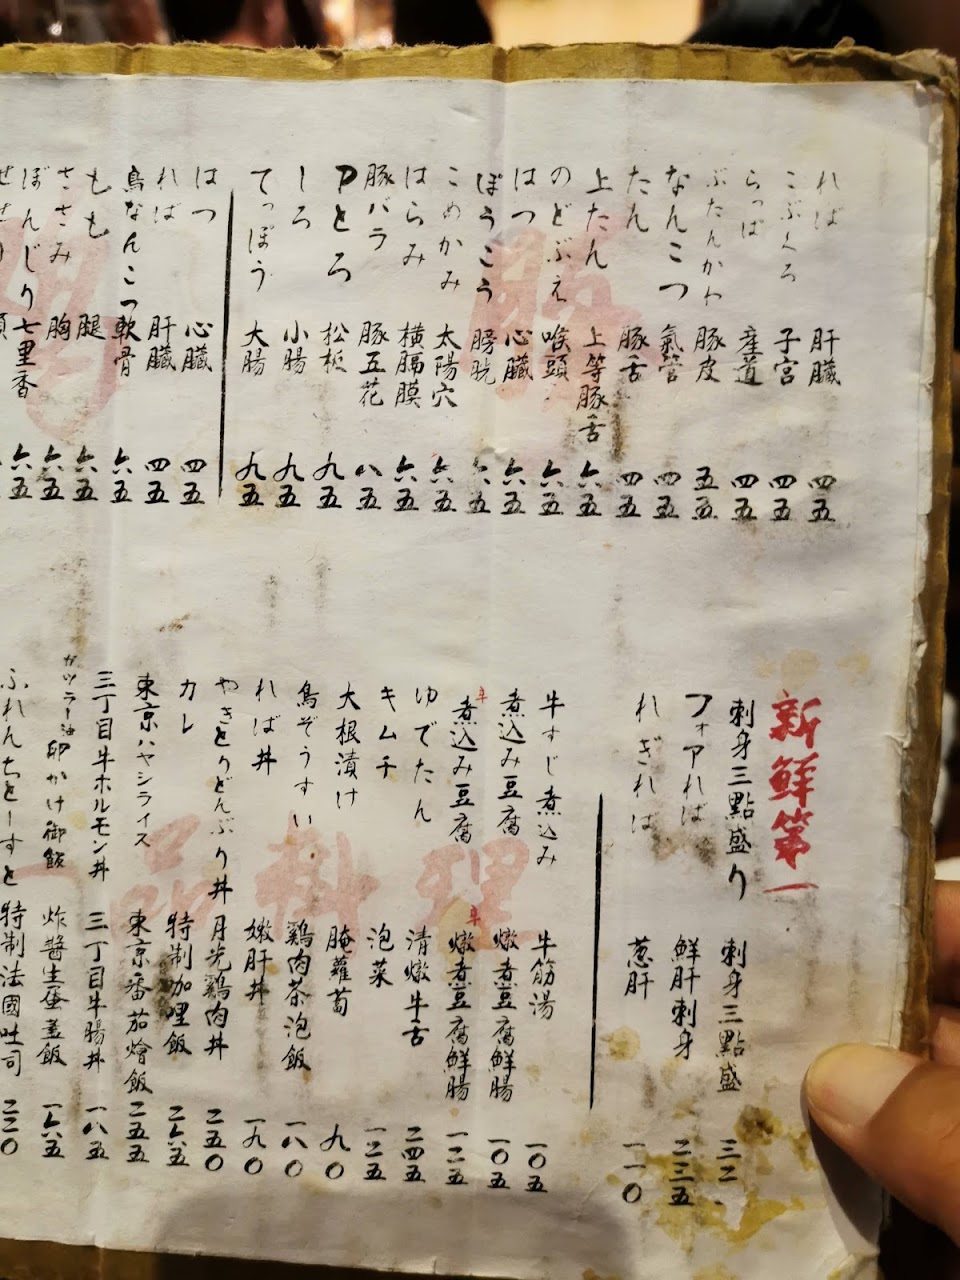 豚
れば 肝臟 四五
こぶくろ 子宮 四五
らっぱ 產道 四五
ぶたんかわ 豚皮 五五
なんこつ 氣管 四五
たん 豚舌 四五
上たん 上等豚舌 六五
のどぶえ 喉頭 六五
はつ 心臟 六五
ぼうこう 膀胱 六五
こめかみ 太陽穴 六五
はらみ 橫膈膜 六五
豚バラ 豚五花 八五
Pとろ 松板 九五
しろ 小腸 九五
てっぽう 大腸 九五
はつ 心臟 四五
れば 肝臟 四五
鳥なんこつ 軟骨 六五
もも 腿 六五
ささみ 胸 六五
ぼんじり 七里香 六五
新鮮第一
刺身三點盛り 刺身三點盛
フォアれば 鮮肝刺身 二三五
れぎれば 蔥肝 一一〇
一品料理
牛すじ煮込み 牛筋湯 一〇五
煮込み豆腐 燉煮豆腐鮮腸 一〇五
牛煮込み豆腐 牛燉煮豆腐鮮腸 一二五
ゆでたん 清燉牛舌 二四五
キムチ 泡菜 一二五
大根漬け 醃蘿蔔 九〇
鳥ぞうすい 鷄肉茶泡飯 一八〇
れば丼 嫩肝丼 一九〇
やきとりどんぶり丼 月光鷄肉丼 二五〇
カレ 特制加哩飯 二六五
東京ハヤシライス 東京番茄燴飯 二五五
三丁目牛ホルモン丼 三丁目牛腸丼 一八五
ガツラー油卵かけ御飯 炸醬生蛋蓋飯 一六五
ふれんちとーすと 特制法國吐司 二二〇